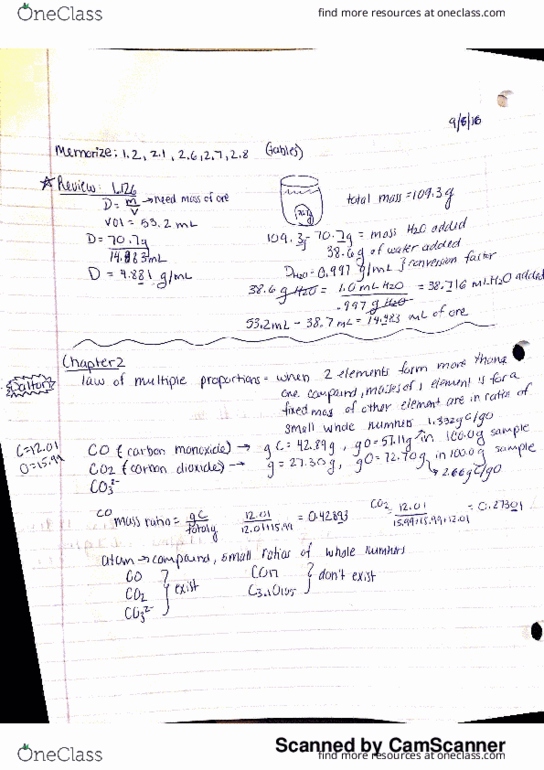 OneClass find more resources at oneclass.com
9/8/16
Memorize: 1.2, 2.1, 2.6, 2.7, 2.8 (tables)
Review: 1.126
D = m/v → need mass of ore
vol = 53.2 mL
D = 70.7g
14.483mL
D = 4.881 g/mL
total mass = 109.3g
109.3g - 70.7g = mass H2O added
38.6g of water added
DH2O = 0.997 g/mL } conversion factor
38.6 g H2O = 1.0 mL H2O = 38.716 mL H2O added
.997 g H2O
53.2mL - 38.7 mL = 14.483 mL of ore
Chapter 2
Dalton
law of multiple proportions = when 2 elements form more than
one compound, masses of 1 element is for a
fixed mass of other element are in ratios of
small whole numbers
1.332gC/gO
C=12.01
O=15.99
CO (carbon monoxide) → gC = 42.89g, gO = 57.11g in 100.0g sample
CO2 (carbon dioxide) → g = 27.30g, gO = 72.70g in 100.0g sample
2.66gC/gO
CO3 2-
CO
mass ratio = gC 12.01 = 0.42893
total g 12.01+15.99
CO2 12.01 = 0.27301
15.99+15.99+12.01
atom → compound, small ratios of whole numbers
CO
CO2 } exist
CO3 2-
CO17
C3.1O195 } don't exist
OneClass find more resources at oneclass.com
Scanned by CamScanner